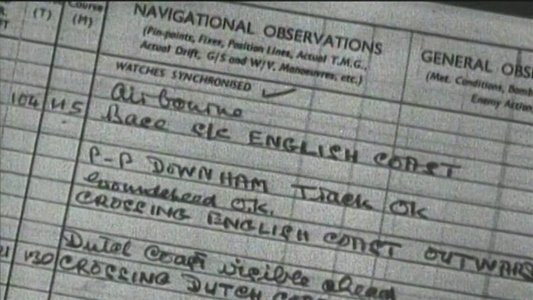 (T)
Course
(M)
NAVIGATIONAL OBSERVATIONS
(Pin-points, Fixes, Position Lines, Actual T.M.G.,
Actual Drift, G/S and W/V, Manoeuvres, etc.)
WATCHES SYNCHRONISED ✓
GENERAL OBS
(Met. Conditions, Bomb
Enemy Action
airbourne
104 115 Base s/c ENGLISH COAST
P-P DOWNHAM Track OK
Groundspeed O.K.
CROSSING ENGLISH COAST OUTWARS
Dutch Coast visible ahead
130 CROSSING DUTCH